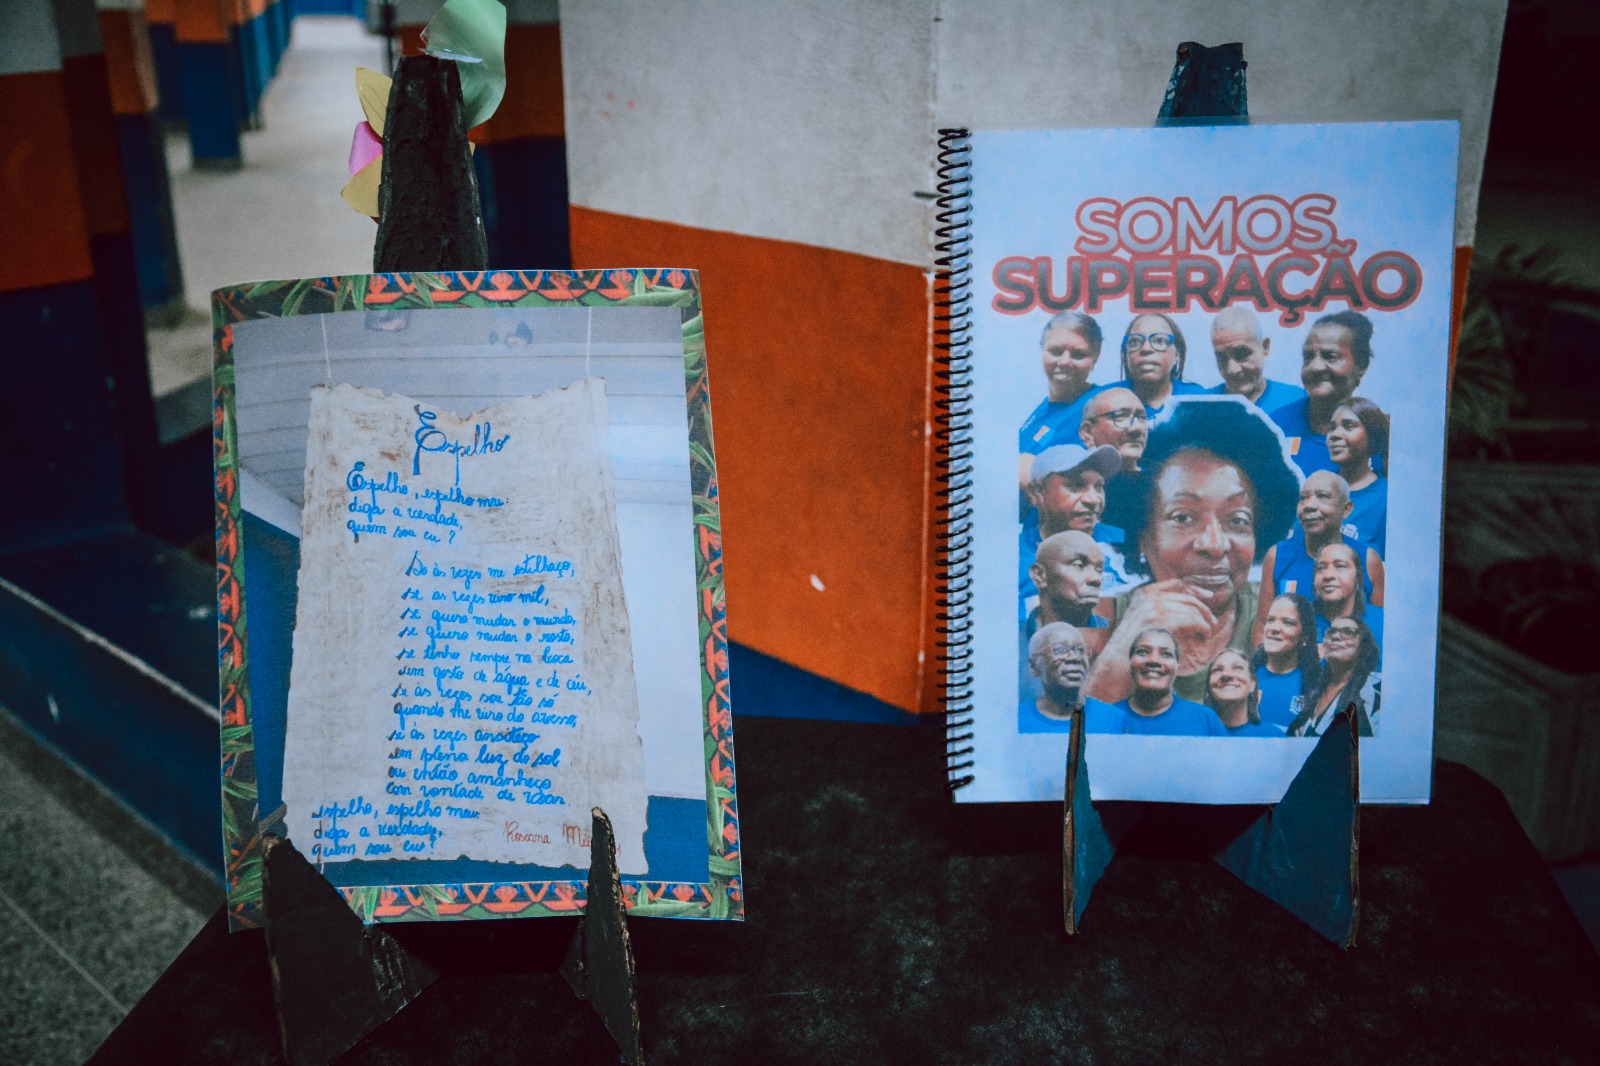 Espelho
Espelho, espelho meu:
diga a verdade,
quem sou eu?
Se às vezes me estilhaço,
se às vezes viro mil,
se quero mudar o mundo,
se quero mudar o rosto,
se tenho sempre na boca
um gosto de água e de céu,
se às vezes sou tão só
quando me viro do avesso,
se às vezes anoiteço
em plena luz do sol
ou então amanheço
com vontade de voar.
espelho, espelho meu:
diga a verdade,
quem sou eu?
Roseana
SOMOS
SUPERAÇÃO